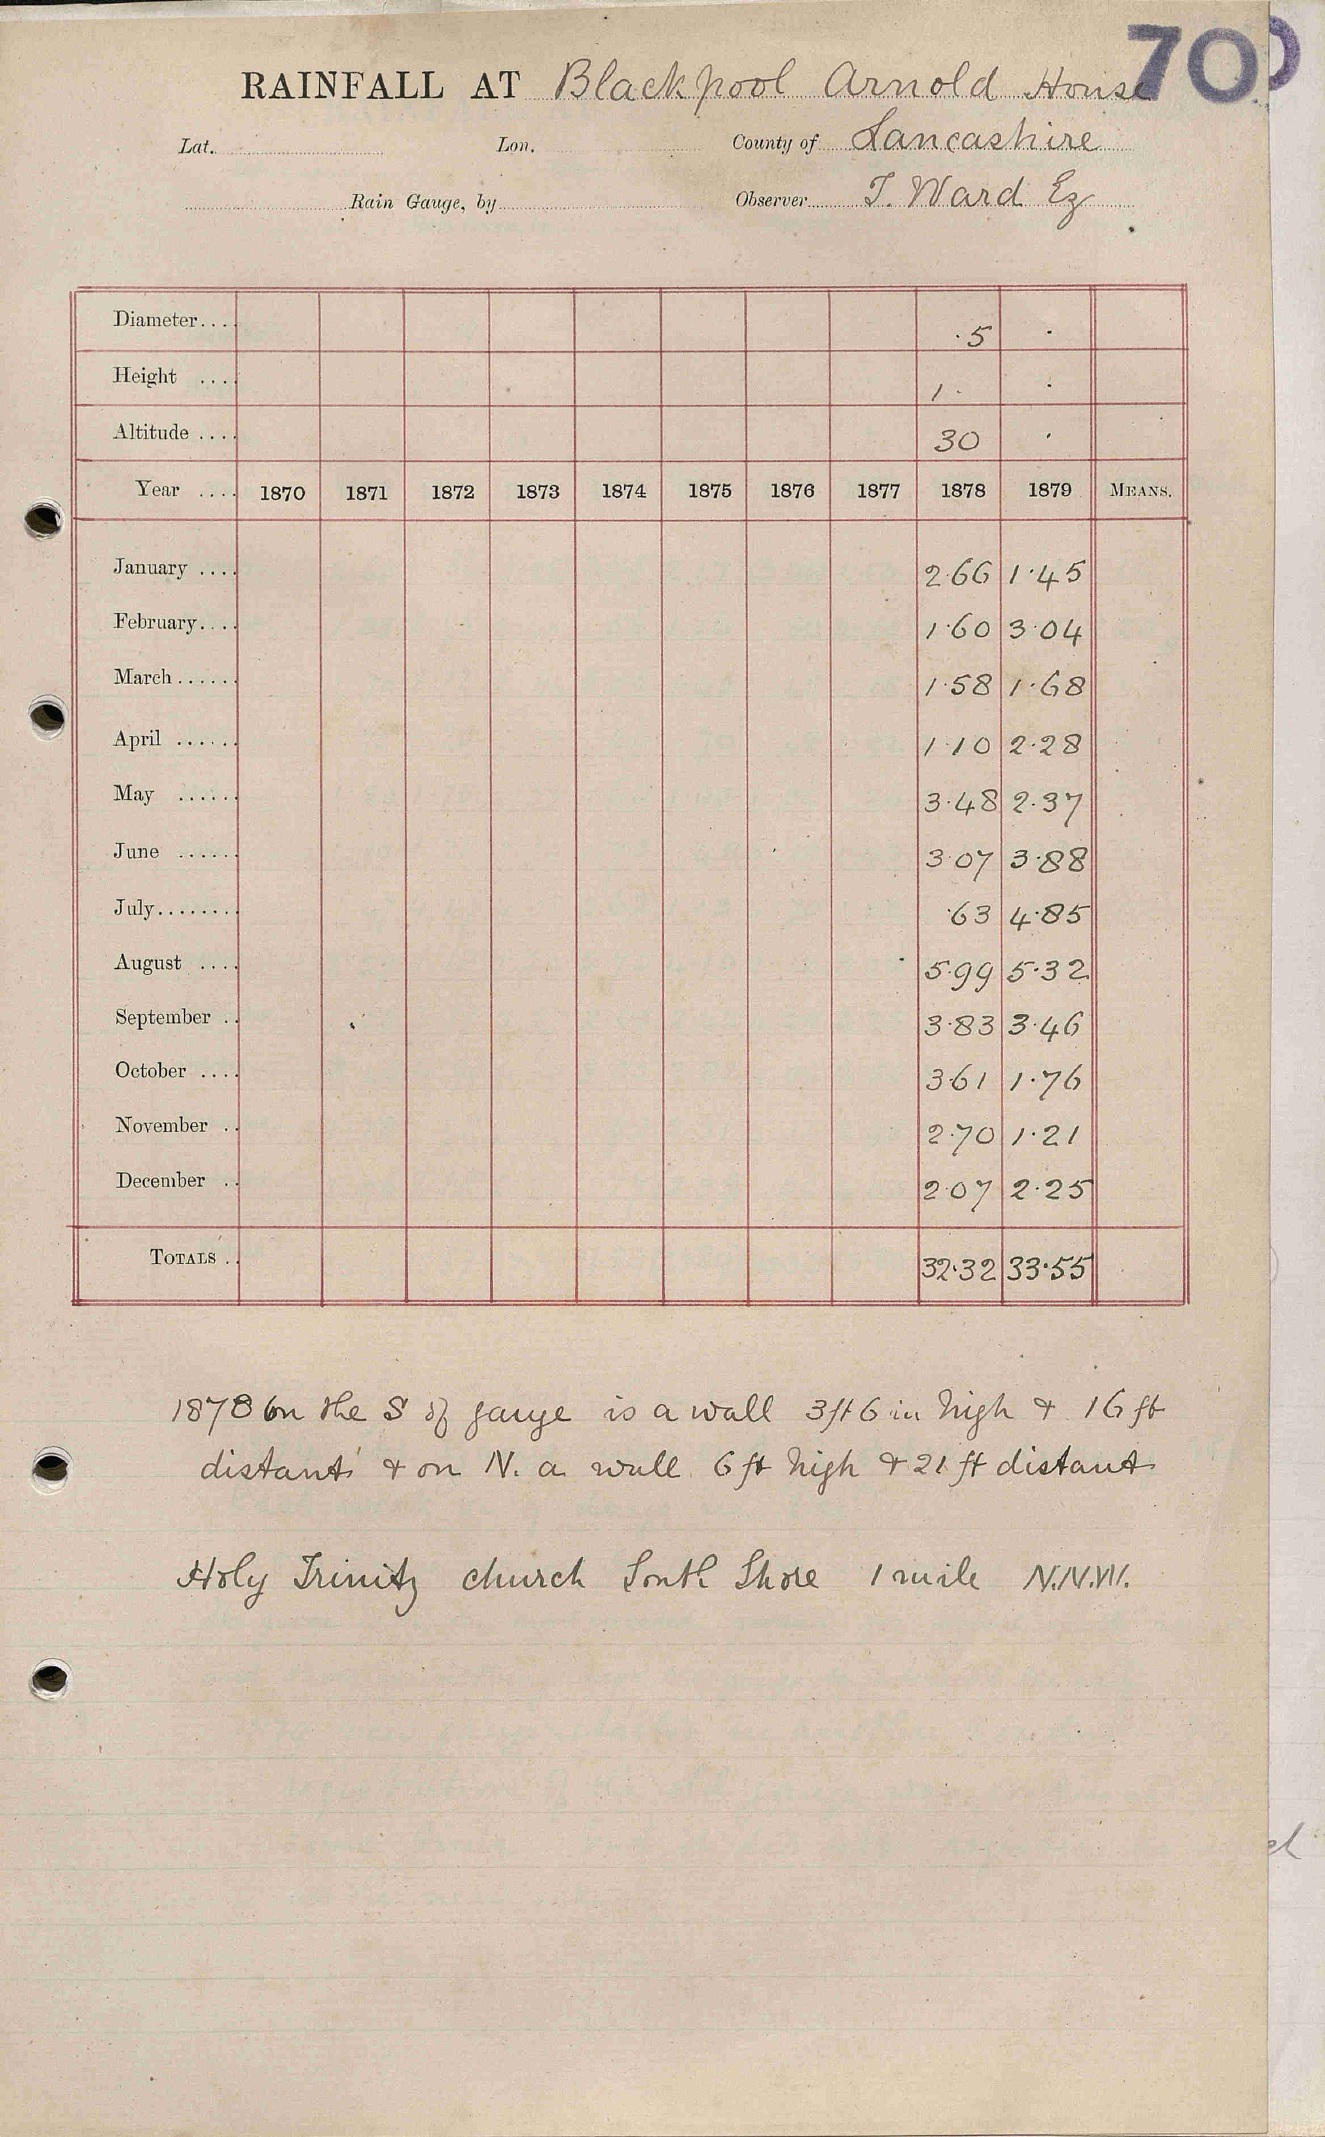 70
RAINFALL AT Blackpool Arnold House
Lat. Lon. County of Lancashire
Rain Gauge, by Observer T. Ward Ez
Diameter.... ·5 ·
Height .... 1· ·
Altitude .... 30 ·
Year .... 1870 1871 1872 1873 1874 1875 1876 1877 1878 1879 MEANS.
January .... 2·66 1·45
February.... 1·60 3·04
March...... 1·58 1·68
April ...... 1·10 2·28
May ...... 3·48 2·37
June ...... 3·07 3·88
July........ ·63 4·85
August .... 5·99 5·32
September .. 3·83 3·46
October .... 3·61 1·76
November .. 2·70 1·21
December .. 2·07 2·25
TOTALS .. 32·32 33·55
1878 On the S of gauge is a wall 3ft 6 in high & 16 ft
distant & on N. a wall 6 ft high & 21 ft distant
Holy Trinity church South Shore 1 mile N.N.W.